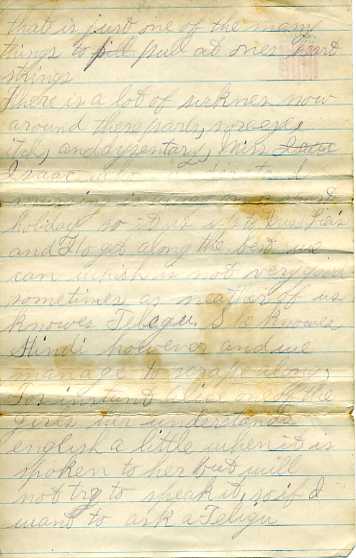 that is just one of the many
things to pull at ones heart
strings
There is a lot of sickness now
around these parts, sore eyes,
itch, and dysentary, Miss
Isaac
holiday so it is up to
and I to get along the best we
can which is not very good
sometimes as neather of us
knowes Telegu. She knowes
Hindi however and we
manage to scrape along.
For instunt of the
girls understands
english a little when it is
spoken to her but will
not try to speak it, so if I
want to ask a Telegu